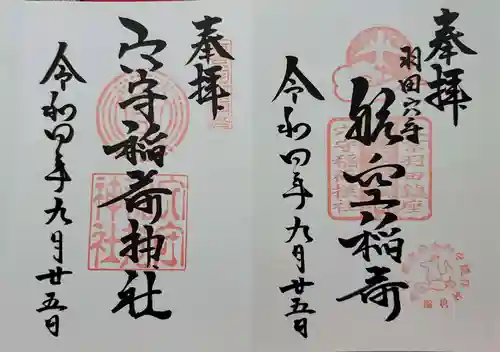 奉拝
羽田穴守
航空稲荷
令和四年九月廿五日
奉拝
穴守稲荷神社
令和四年九月廿五日
穴守稲荷神社